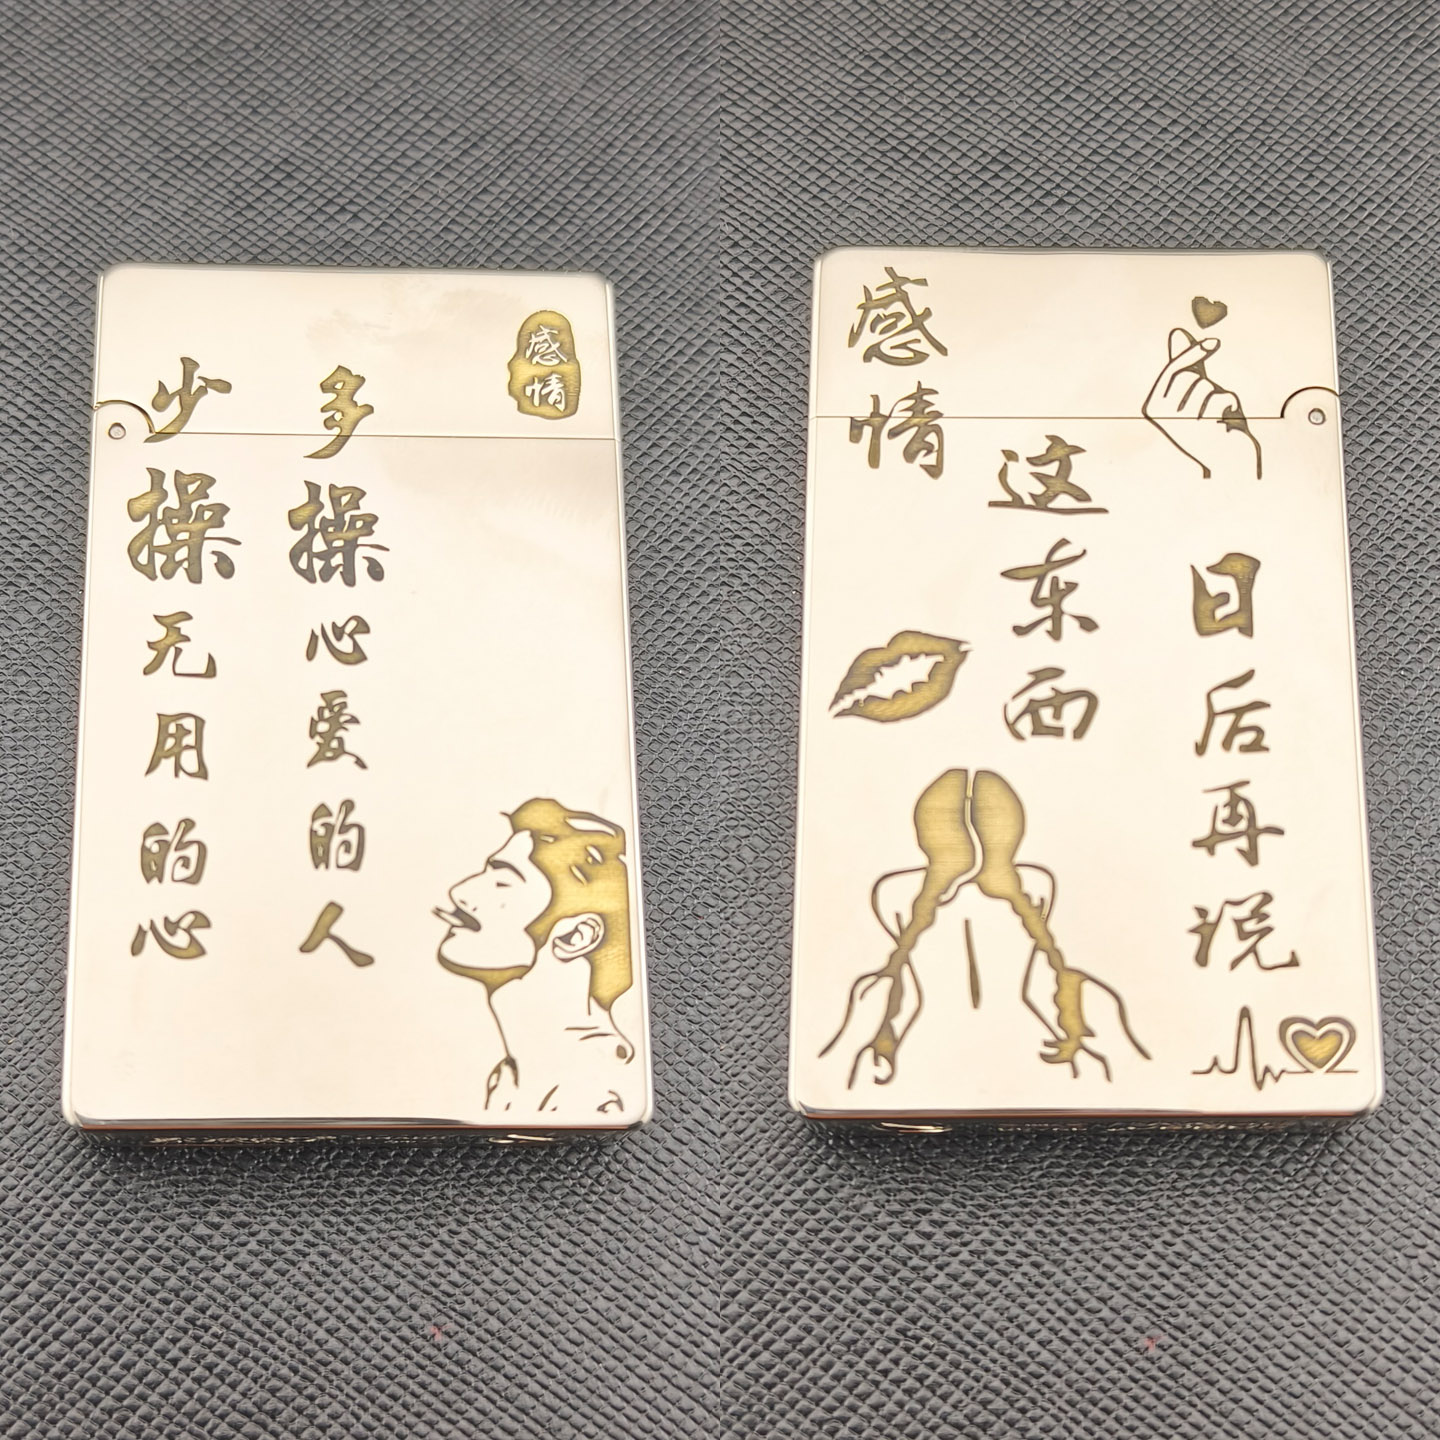 少操无用的心
多操心爱的人
感情
感情
这东西
日后再说